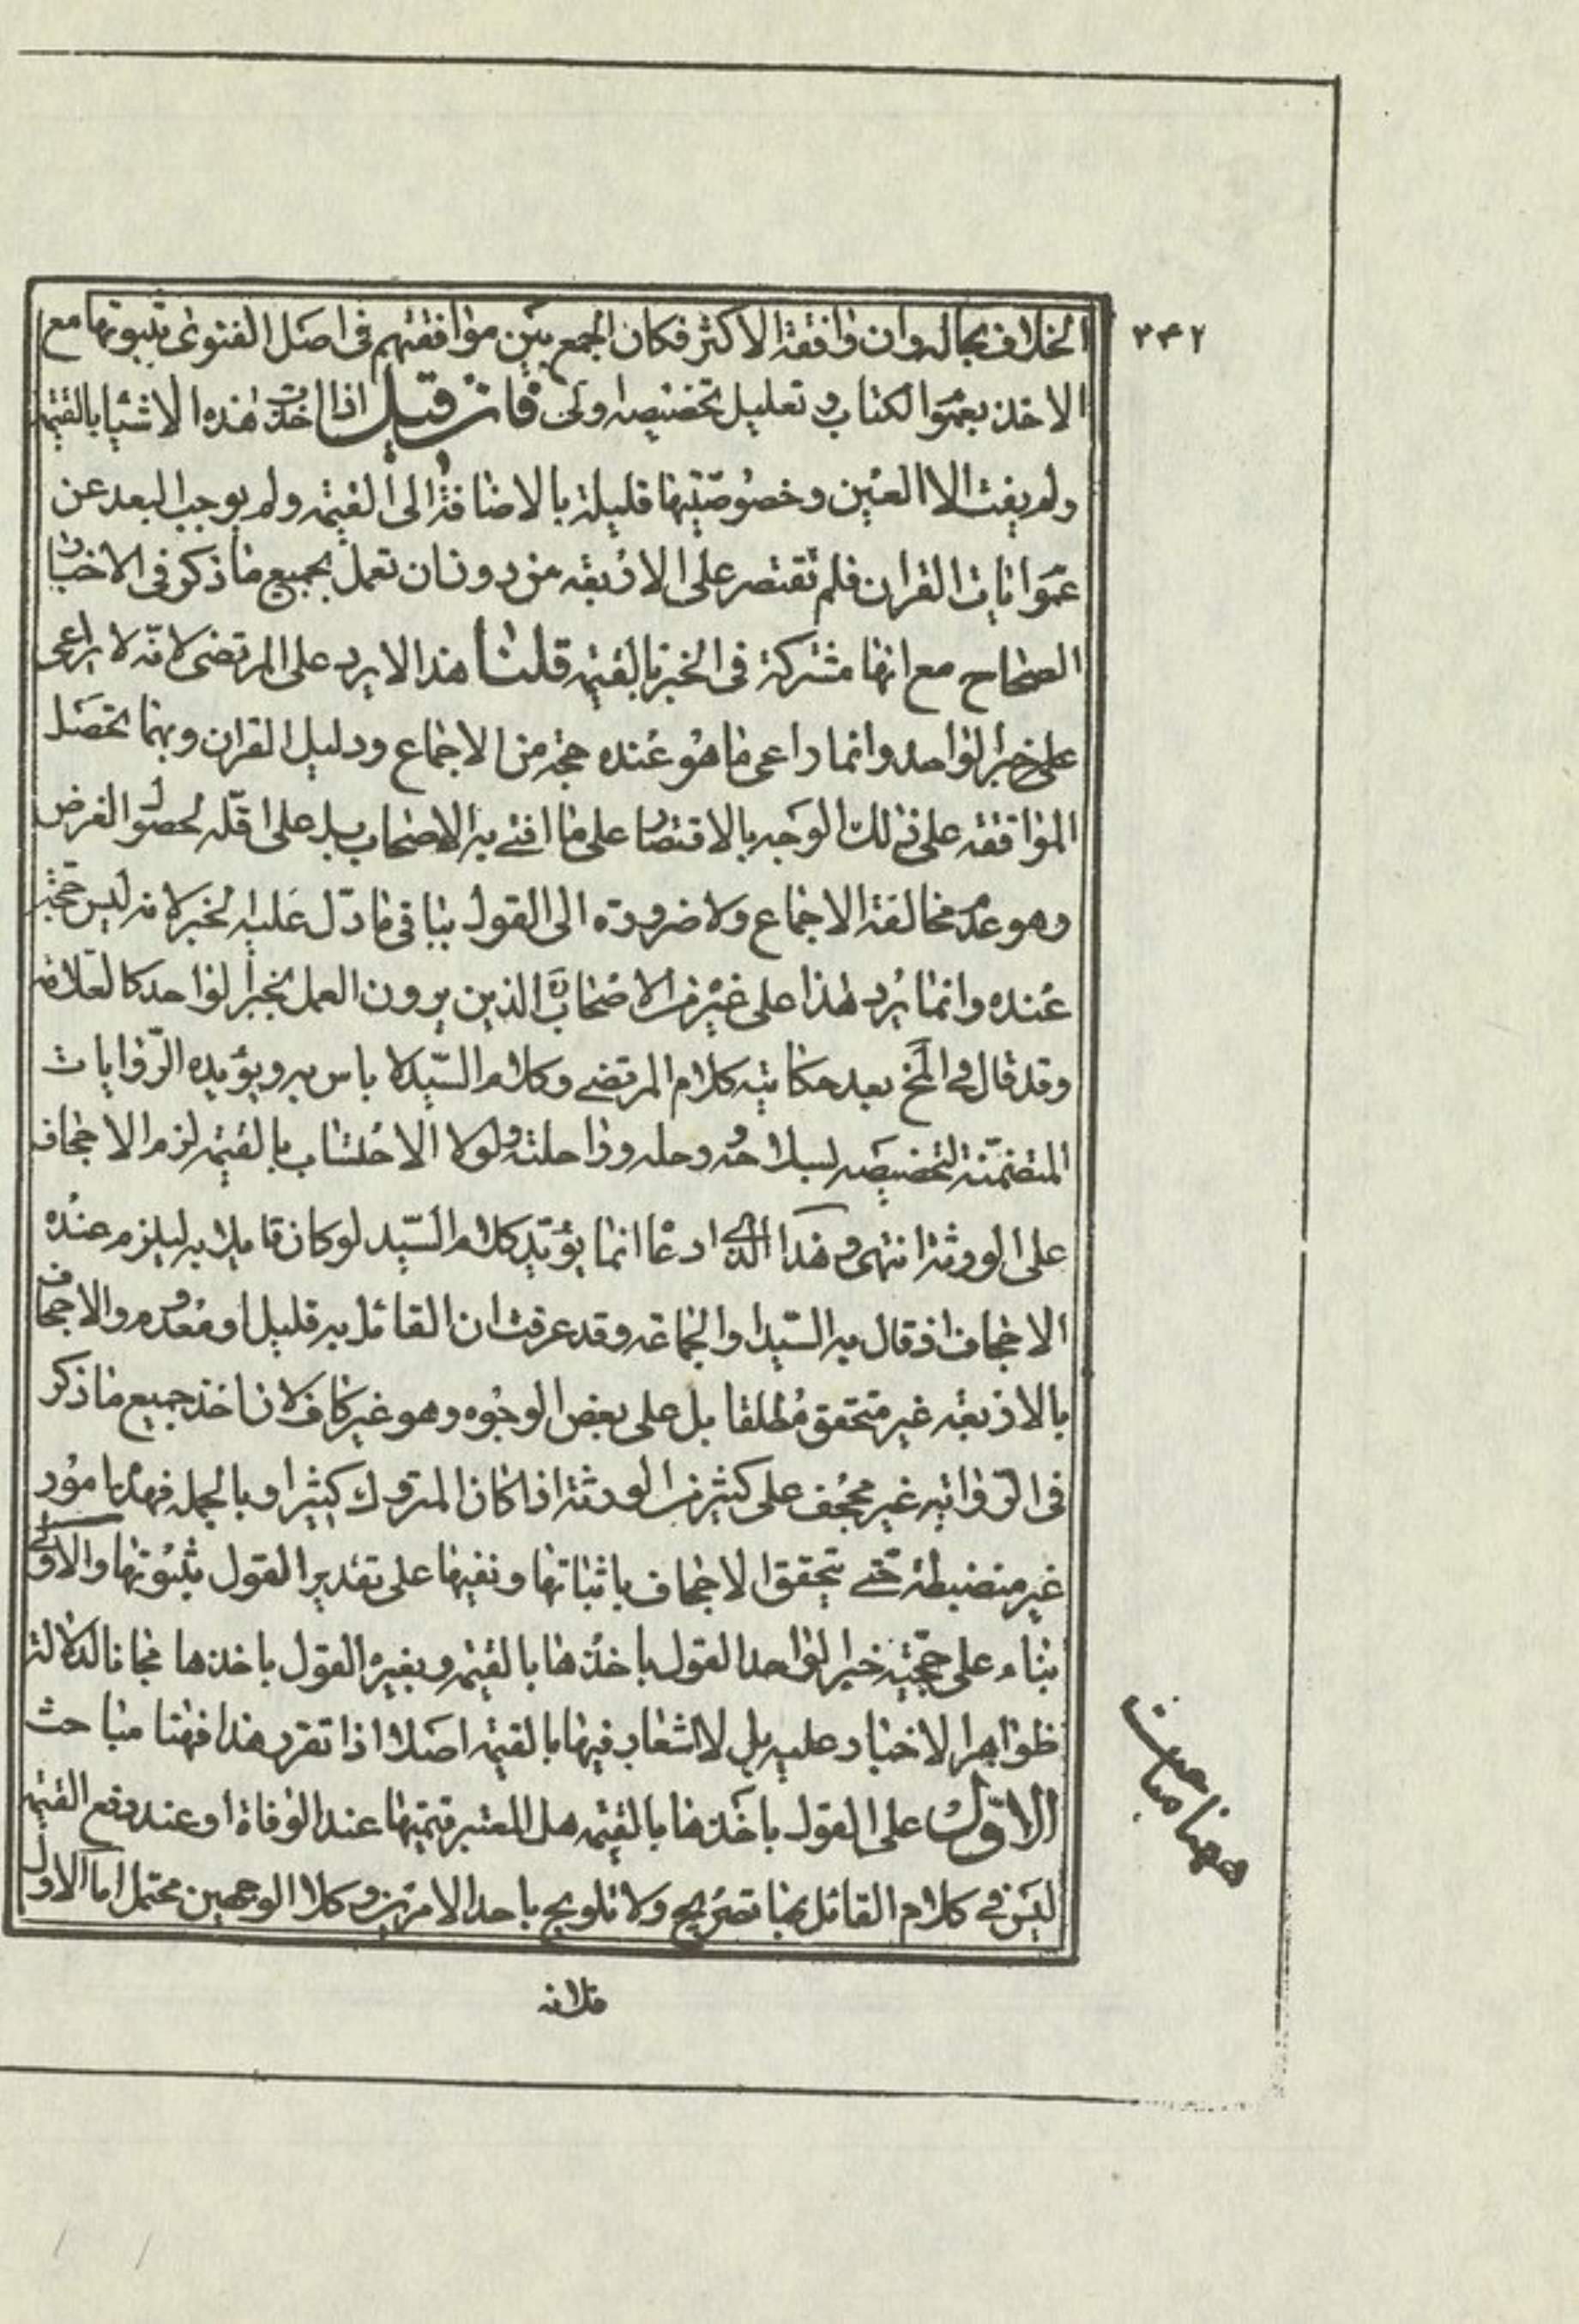 ٣٤٢
الخلاف بحاله وان وافقه الاكثر فكان الجمع بين موافقتهم فى اصل الفتوى بثبوتها مع
الاخذ بعموم الكتاب و تعليل تخصيصه اولى فان قيل اذا اخذت هذه الاشيا بالقيمه
ولم يفت الا العين وخصوصيتها قليلة بالاضافة الى القيمه ولم يوجب البعد عن
عموم ايات القران فلم تقتصر على الاربعه من دون ان تعمل بجميع ما ذكر فى الاخبار
الصحاح مع انها مشتركة فى الخبر بالقيمه قلنا هذا لا يرد على المرتضى لانّه لا يراعى
على خبر الواحد وانما راعى ما هو عنده حجة من الاجماع ودليل القران وبهما تحصل
الموافقه على ذلك الوجه بالاقتصار على ما افتى به الاصحاب بل على اقلّه لحصول الغرض
وهو عدم مخالفة الاجماع ولا ضرورة الى القول بباقى ما دلّ عليه الخبر لانه ليس بحجّة
عنده وانما يرد هذا على غيره من الاصحاب الذين يرون العمل بخبر الواحد كالعلامه
وقد قال فى المخ بعد حكايته كلام المرتضى وكلام السّيد لا باس به ويؤيده الرّوايات
المتضمّنة لتخصيصه بسلاحه و رحله وراحلته ولولا الاحتساب بالقيمه لزم الاجحاف
على الورثة انتهى وهذا الذى ادعا انما يؤيّد كلام السّيد لو كان قايلا به ليلزم عنده
الاجحاف اذ قال به السّيد او الجماعه وقد عرفت ان القائل به قليل او معدوم والاجحاف
بالاربعه غير متحقق مطلقا بل على بعض الوجوه وهو غير كاف لان اخذ جميع ما ذكر
فى الرّوايه غير مجحف على كثير من الورثة اذا كان المتروك كثيرا وبالجمله فهذه امور
غير منضبطة حتى يتحقق الاجحاف باثباتها ونفيها على تقدير القول بثبوتها والاولى
بناء على حجّيّة خبر الواحد القول باخذها بالقيمه وبغيره القول باخذها مجانا لدلالة
ظواهر الاخبار عليه بل لا اشعار فيها بالقيمه اصلا اذا تقرر هذا فهنا مباحث
الاوّل على القول باخذها بالقيمه هل المعتبر قيمتها عند الوفاة او عند دفع القيمه
ليس فى كلام القائل بها تصريح ولا تلويح باحد الامرين وكلا الوجهين محتمل اما الاول
ههنا مباحث
فلانه